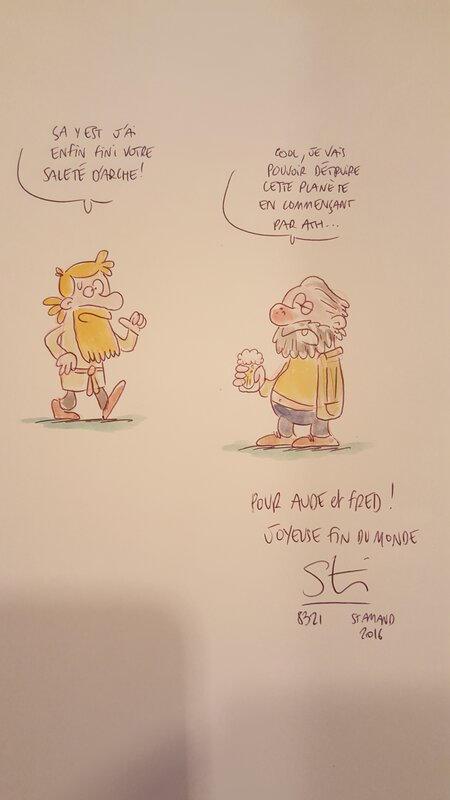 ÇA Y EST J'AI
ENFIN FINI VOTRE
SALETÉ D'ARCHE!
COOL, JE VAIS
POUVOIR DÉTRUIRE
CETTE PLANÈTE
EN COMMENÇANT
PAR ATH...
POUR AUDE et FRED !
JOYEUSE FIN DU MONDE
Sti
8321 ST AMAND
2016